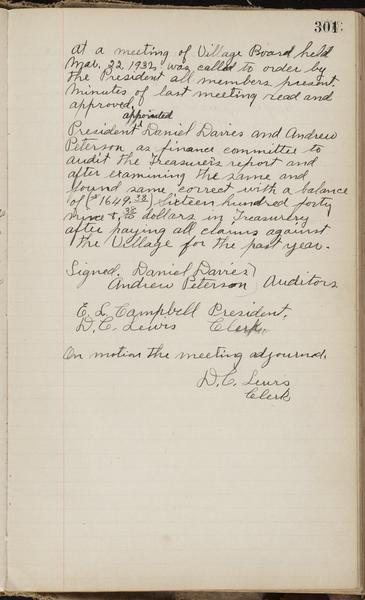 301
At a meeting of Village Board held
Mar. 22, 1932 was called to order by
the President all members present.
Minutes of last meeting read and
approved.
appointed
President Daniel Davies and Andrew
Peterson as finance committee to
audit the Treasurer's report and
after examining the same and
found same correct with a balance
of ($1649. Sixteen hundred forty
nine & dollars in Treasurery
after paying all claims against
the Village for the past year.
Signed. Daniel Davies
Andrew Peterson ) Auditors
E. L. Campbell President.
D. C. Lewis Clerk.
On motion the meeting adjournd.
D. C. Lewis
Clerk